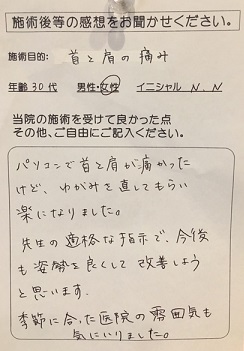 施術後等の感想をお聞かせください。
施術目的: 首と肩の痛み
年齢30代 男性・女性 イニシャル N.N
当院の施術を受けて良かった点
その他、ご自由にご記入ください。
パソコンで首と肩が痛かった
けど、ゆがみを直してもらい
楽になりました。
先生の適格な指示で、今後
も姿勢を良くして改善しよう
と思います。
季節に合った医院の雰囲気も
気にいりました。